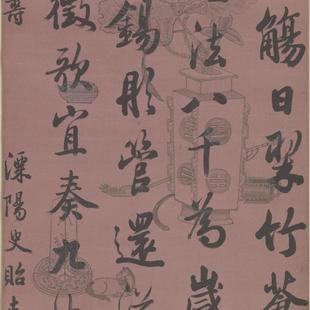 觴日翠竹蒼
法八千為歲
錫彤管還
徵歌宜奏九
壽
溧陽史貽